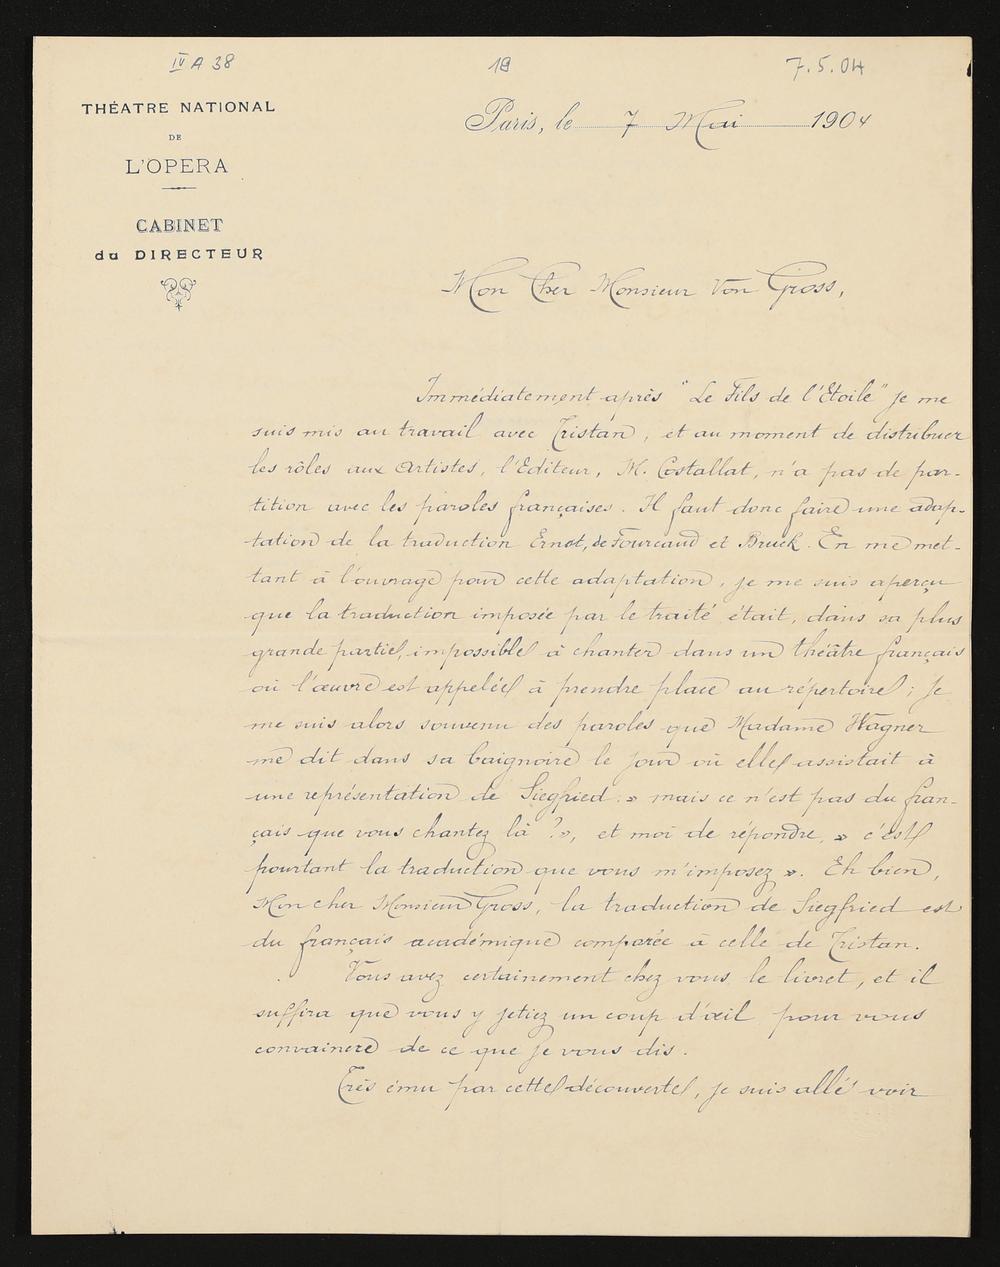 IV A 38
19
7.5.04
THÉATRE NATIONAL
DE
L'OPERA
CABINET
du DIRECTEUR
Paris, le 7 Mai 1904
Mon Cher Monsieur Von Gross,
Immédiatement après "Le Fils de l'Etoile" je me
suis mis au travail avec Tristan, et au moment de distribuer
les rôles aux Artistes, l'Editeur, M. Costallat, n'a pas de par-
tition avec les paroles françaises. Il faut donc faire une adap-
tation de la traduction Ernst, de Fourcaud et Bruck. En me met-
tant à l'ouvrage pour cette adaptation, je me suis aperçu
que la traduction imposée par le traité était, dans sa plus
grande partie, impossible à chanter dans un théâtre français
où l'œuvre est appelée à prendre place au répertoire ; je
me suis alors souvenu des paroles que Madame Wagner
me dit dans sa baignoire le jour où elle assistait à
une représentation de Siegfried : » mais ce n'est pas du fran-
çais que vous chantez là ? », et moi de répondre, » c'est
pourtant la traduction que vous m'imposez ». Eh bien,
Mon cher Monsieur Gross, la traduction de Siegfried est
du français académique comparée à celle de Tristan.
Vous avez certainement chez vous le livret, et il
suffira que vous y jetiez un coup d'œil pour vous
convaincre de ce que je vous dis.
Très ému par cette découverte, je suis allé voir